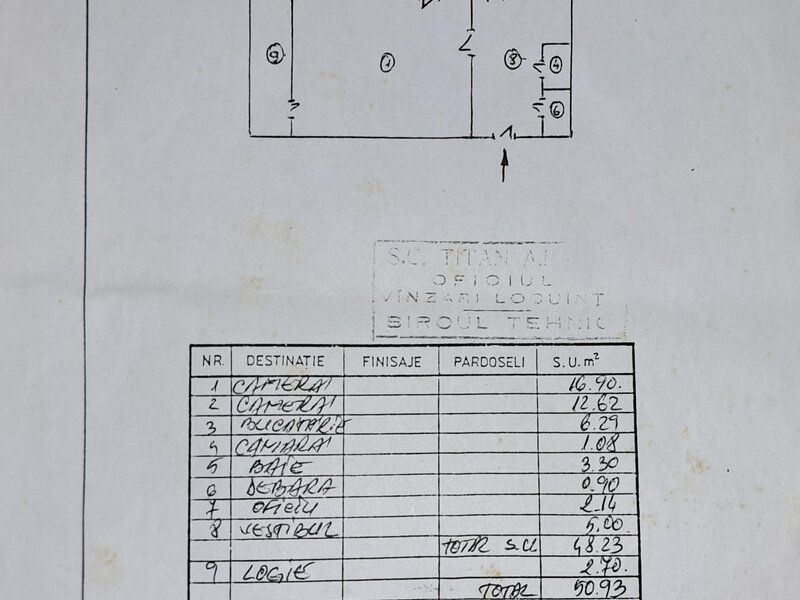 9 1 8 4
6
S.C. TITAN A.I
OFICIUL
VÎNZARI LOCUINT
BIROUL TEHNIC
NR. DESTINATIE FINISAJE PARDOSELI S.U.m²
1 CAMERĂ 16.90.
2 CAMERĂ 12.62
3 BUCATĂRIE 6.29
4 CĂMARĂ 1.08
5 BAIE 3.30
6 DEBARA 0.90
7 OFICIU 2.14
8 VESTIBUL 5.00
TOTAL S.U. 48.23
9 LOGIE 2.70.
TOTAL 50.93